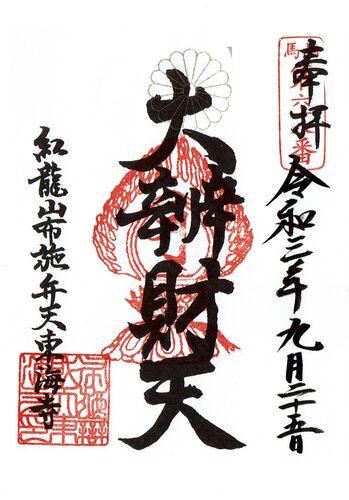 奉拝 令和三年九月二十五日
大辨財天
紅龍山布施弁天東海寺